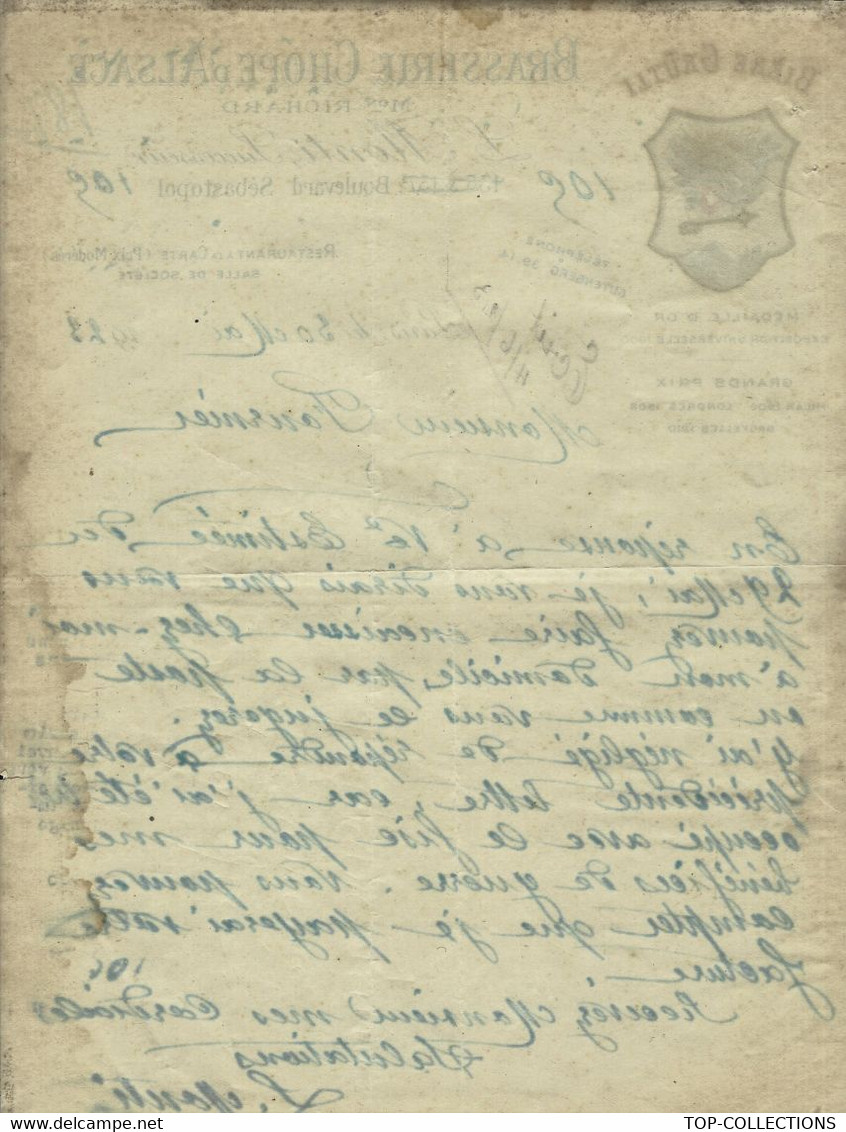 BRASSERIE CHOPE D'ALSACE
BIÈRE GRÜTLI
Mon RICHARD
L. Monti Successeur
Boulevard Sébastopol
109
109
RESTAURANT à la CARTE (Prix Modérés)
SALLE DE SOCIÉTÉ
TÉLÉPHONE
GUTENBERG 39
MÉDAILLE D'OR
EXPOSITION UNIVERSELLE 1900
GRANDS PRIX
MILAN 1906 LONDRES 1908
BRUXELLES 1910
Paris le 30 Mai 1923
Monsieur Fournier
En réponse a' Vre Estimée du
29 Mai, je vous dirais que vous
pouvez faire encaisser chez-moi
à mon domicile, par la poste
ou comme vous le jugerez.
J'ai négligé de répondre a votre
précédente lettre, car, j'ai été
occupé avec le fisc pour mes
bénéfices de guerre. Vous pouvez
compter que je payerai votre
facture
Recevez, Monsieur mes Cordiales
Salutations
L. Monti
TOP-COLLECTIONS